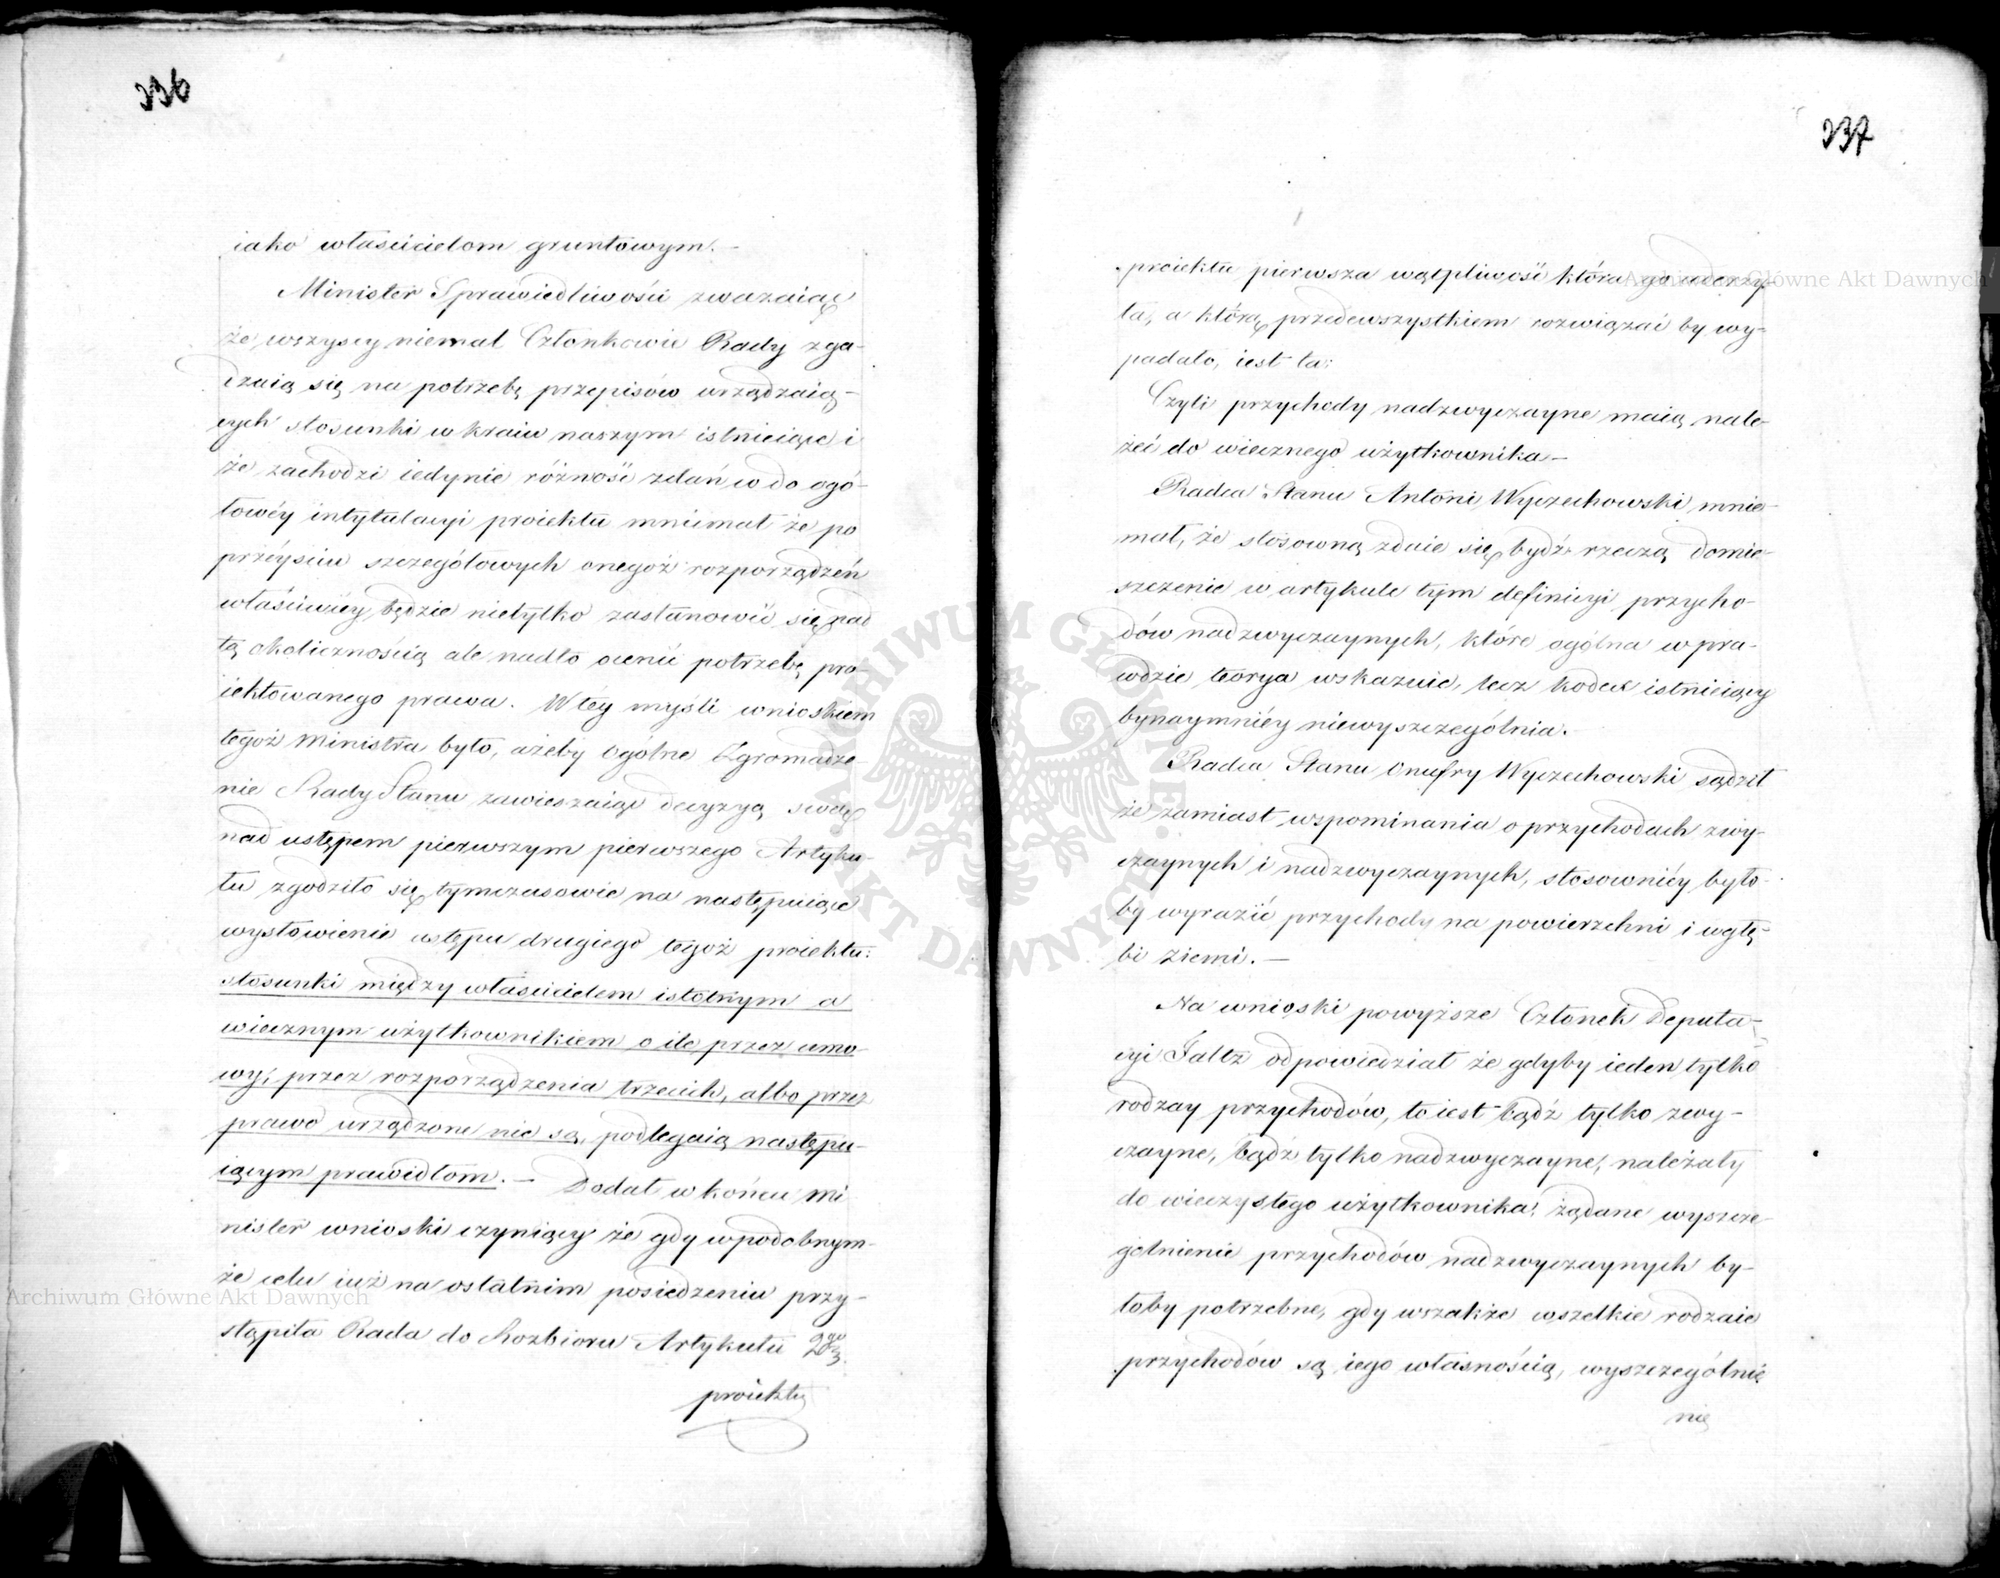 336
iako właścicielom gruntowym. —
Minister Sprawiedliwości zważaiąc
że wszyscy niemal Członkowie Rady zga-
dzaią się na potrzebę przepisów urządzaią-
cych stosunki w kraiu naszym istnieiące i
że zachodzi iedynie różność zdań w do ogó-
łowéy intytulacyi proiektu mniemał że po
przéyściu szczegółowych onegoż rozporządzeń
właściwiéy będzie nietylko zastanowić się nad
tą okolicznością ale nadto ocenić potrzebę pro
iektowanego prawa. W téy myśli wnioskiem
tegoż Ministra było, ażeby Ogólne Zgromadze-
nie Rady Stanu zawieszaiąc decyzyą swoię
nad ustępem pierwszym pierwszego Artyku-
łu zgodziło się tymczasowie na następuiące
wysłowienie ustępu drugiego tegoż proiektu:
stosunki między właścicielem istotnym a
wiecznym użytkownikiem o ile przez umo-
wy, przez rozporządzenia trzecich, albo przez
prawo urządzone nie są, podlegaią następu-
iącym prawidłom. — Dodał w końcu Mi
nister wnioski czyniący że gdy w podobnym-
że celu iuż na ostatnim posiedzeniu przy-
stąpiła Rada do Rozbioru Artykułu 2go
proiektu
337
proiektu pierwsza wątpliwość która go uderzy-
ła, a którą przedewszystkiem rozwiązać by wy-
padało, iest ta:
Czyli przychody nadzwyczayne maią nale-
żeć do wiecznego użytkownika —
Radca Stanu Antoni Wyczechowski mnie-
mał, że stosowną zdaie się bydź rzeczą domie-
szczenie w artykule tym definicyi przycho-
dów nadzwyczaynych, które ogólna wpra-
wdzie teorya wskazuie, lecz kodex istnieiący
bynaymniéy niewyszczególnia.
Radca Stanu Onufry Wyczechowski sądził
że zamiast wspominania o przychodach zwy-
czaynych i nadzwyczaynych, stosowniéy było-
by wyrazić przychody na powierzchni i w głę-
bi ziemi. —
Na wnioski powyższe Członek Deputa-
cyi Faltz odpowiedział że gdyby ieden tylko
rodzay przychodów, to iest bądź tylko zwy-
czayne, bądź tylko nadzwyczayne, należały
do wieczystego użytkownika, żądane wyszcze-
gólnienie przychodów nadzwyczaynych by-
łoby potrzebne, gdy wszakże wszelkie rodzaie
przychodów są iego własnością, wyszczególnie
nie
Archiwum Główne Akt Dawnych
Archiwum Główne Akt Dawnych
ARCHIWUM GŁÓWNE AKT DAWNYCH